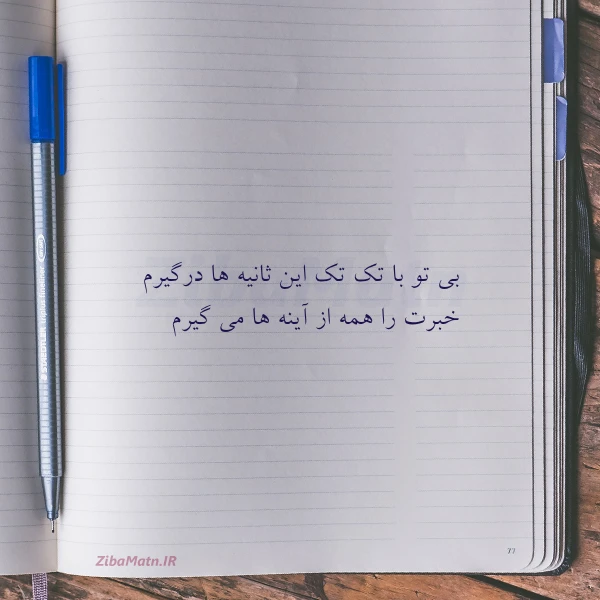 بی تو با تک تک این ثانیه ها درگیرم
خبرت را همه از آینه ها می گیرم
77
ZibaMatn.IR